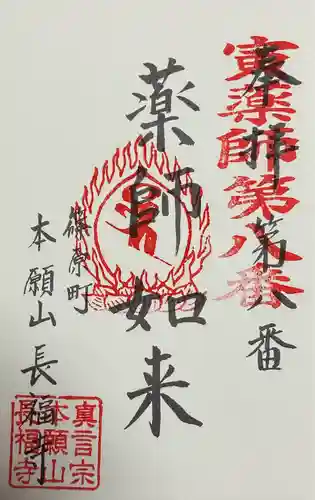 奉拝
第八番
寅薬師第八番
薬師如来
篠原町
本願山長福寺
真言宗
本願山
長福寺